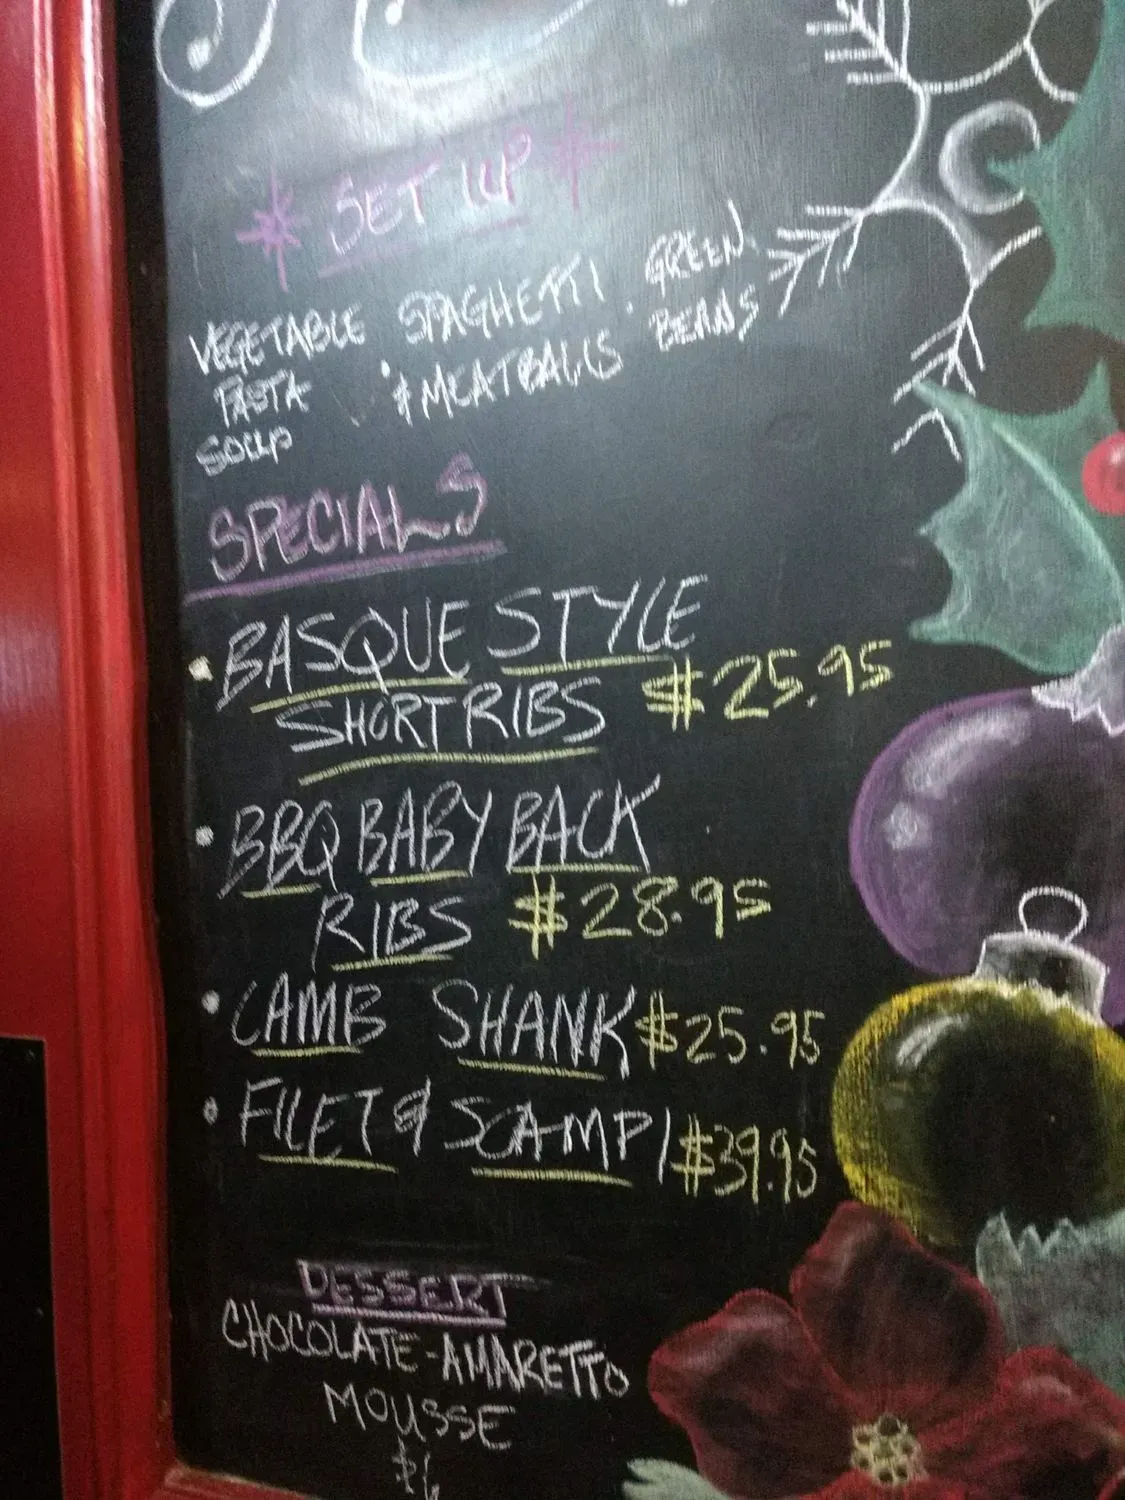 * SET UP *
VEGETABLE PASTA SOUP
SPAGHETTI & MEATBALLS
GREEN BEANS
SPECIALS
• BASQUE STYLE
SHORT RIBS $25.95
• BBQ BABY BACK
RIBS $28.95
• LAMB SHANK $25.95
• FILET & SCAMPI $39.95
DESSERT
CHOCOLATE-AMARETTO
MOUSSE
$6